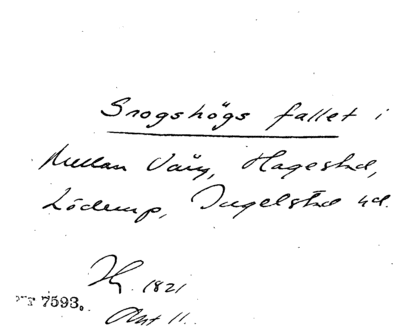 Snogshögs fallet i
Mellan Vång, Hagestad,
Löderup, Ingelstad hd.
Hj. 1821
Akt 11.
7593.